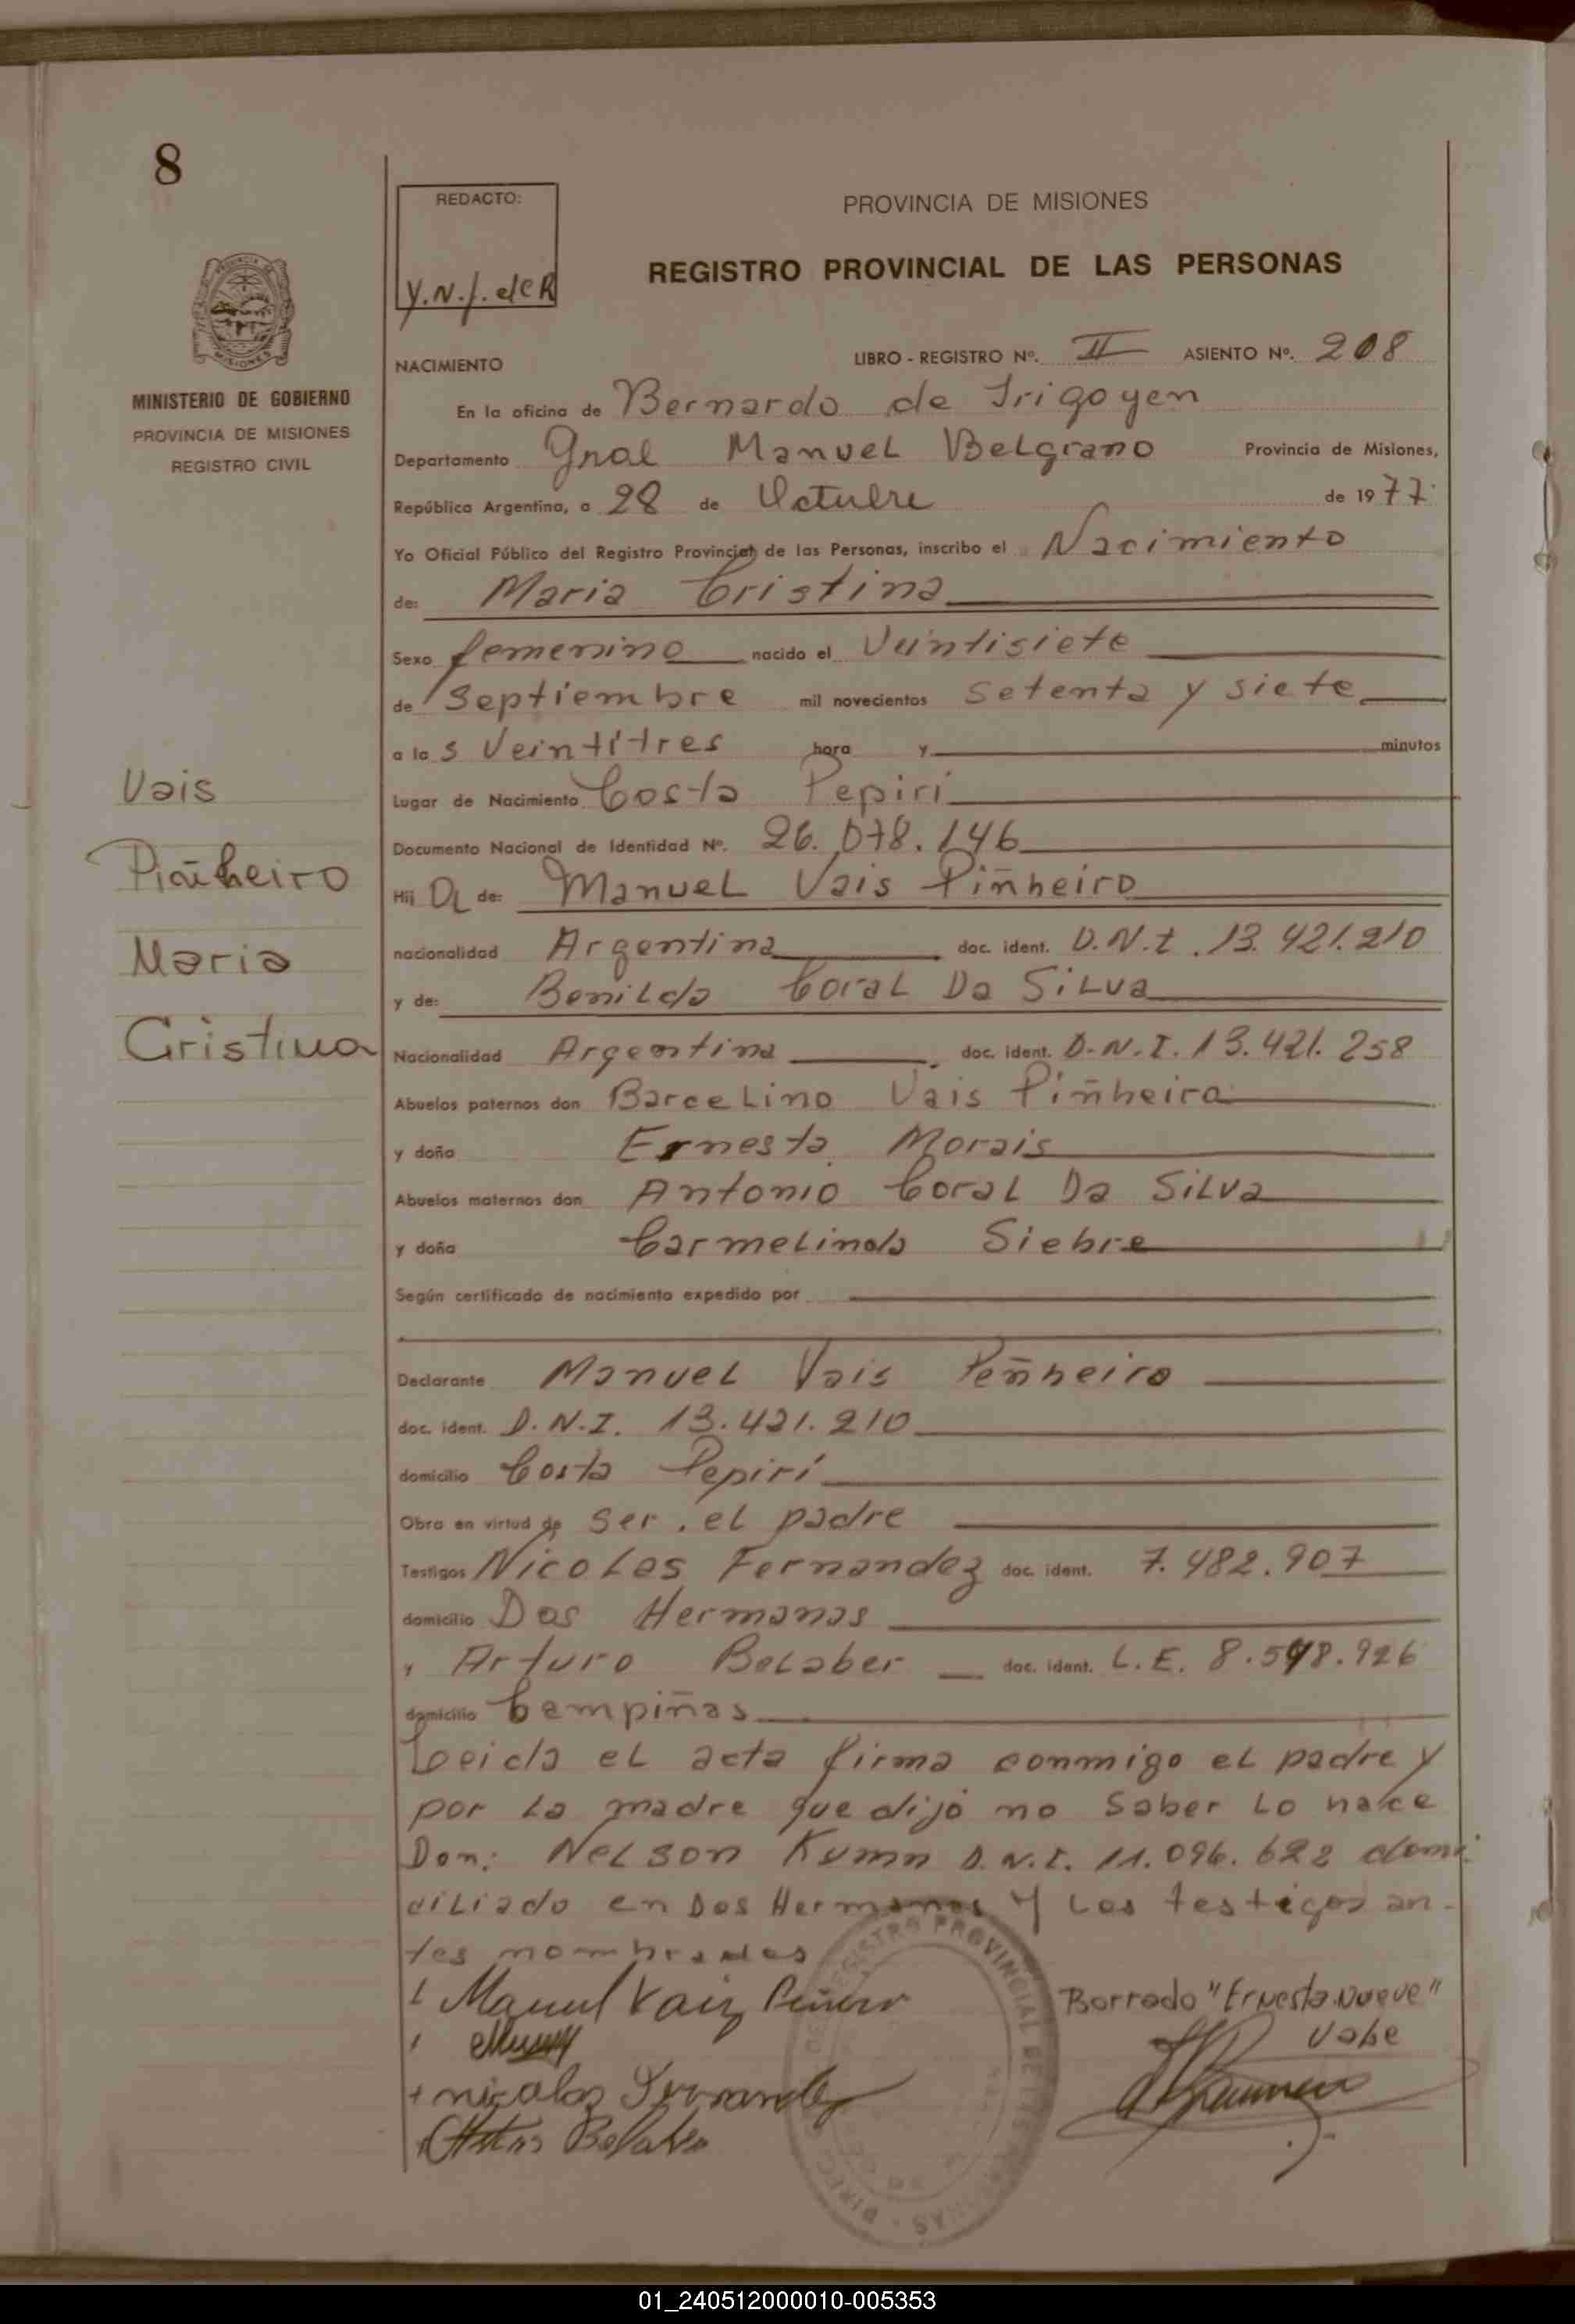 8
REDACTO:
Y.N.J. de R
PROVINCIA DE MISIONES
REGISTRO PROVINCIAL DE LAS PERSONAS
MINISTERIO DE GOBIERNO
PROVINCIA DE MISIONES
REGISTRO CIVIL
NACIMIENTO LIBRO - REGISTRO Nº. II ASIENTO Nº. 208
En la oficina de Bernardo de Irigoyen
Departamento Gnal Manuel Belgrano Provincia de Misiones,
República Argentina, a 28 de Octubre de 1977
Yo Oficial Público del Registro Provincial de las Personas, inscribo el Nacimiento
de: Maria Cristina
Sexo femenino nacido el Veintisiete
de Septiembre mil novecientos setenta y siete
a las Veintitres hora y minutos
Lugar de Nacimiento Costa Pepirí
Documento Nacional de Identidad Nº. 26.078.146
Hija de: Manuel Vais Piñheiro
nacionalidad Argentina doc. ident. D.N.I. 13.421.210
y de: Benilda Coral Da Silva
Nacionalidad Argentina doc. ident. D.N.I. 13.421.258
Abuelos paternos don Barcelino Vais Piñheiro
y doña Ernesta Morais
Abuelos maternos don Antonio Coral Da Silva
y doña Carmelinda Siebre
Según certificado de nacimiento expedido por
Declarante Manuel Vais Peñheiro
doc. ident. D.N.I. 13.421.210
domicilio Costa Pepirí
Obra en virtud de ser el padre
Testigos Nicolas Fernandez doc. ident. 7.482.907
domicilio Dos Hermanas
y Arturo Belaber doc. ident. L.E. 8.548.926
domicilio Campiñas
Leida el acta firma conmigo el padre y
por la madre que dijo no saber lo hace
Don: Nelson Kumn D.N.I. 11.096.622 domi
ciliado en Dos Hermanas y los testigos an-
tes nombrados
Vais
Piñheiro
Maria
Cristina
Manuel Vaiz Peñero
nicolas Fernandez
Belaber
Borrado "Ernesta.Nueve"
Vale
REGISTRO PROVINCIAL DE LAS PERSONAS
01_240512000010-005353